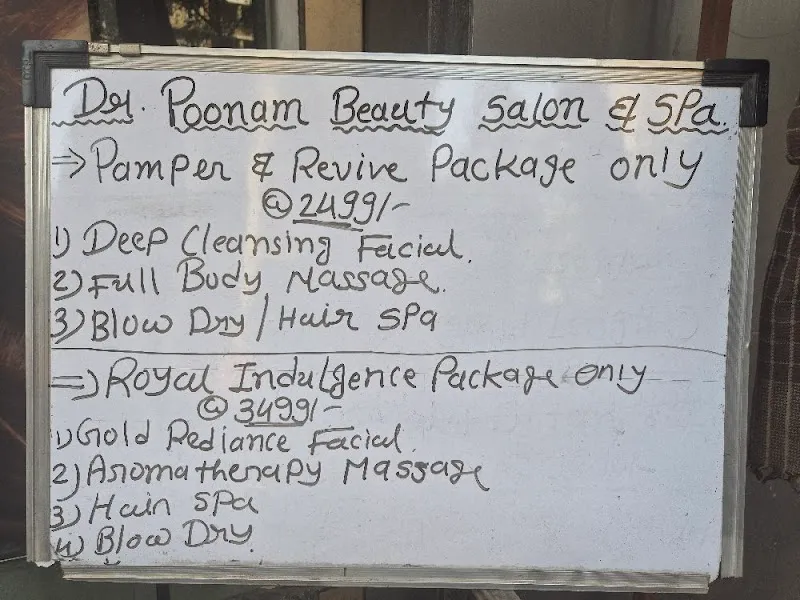 Dr. Poonam Beauty Salon & SPa.
⇒ Pamper & Revive Package only
@ 2499/-
1) Deep Cleansing Facial.
2) Full Body Massage.
3) Blow Dry / Hair SPa
⇒ Royal Indulgence Package only
@ 3499/-
1) Gold Rediance Facial.
2) Aromatherapy Massage
3) Hair SPa
4) Blow Dry.